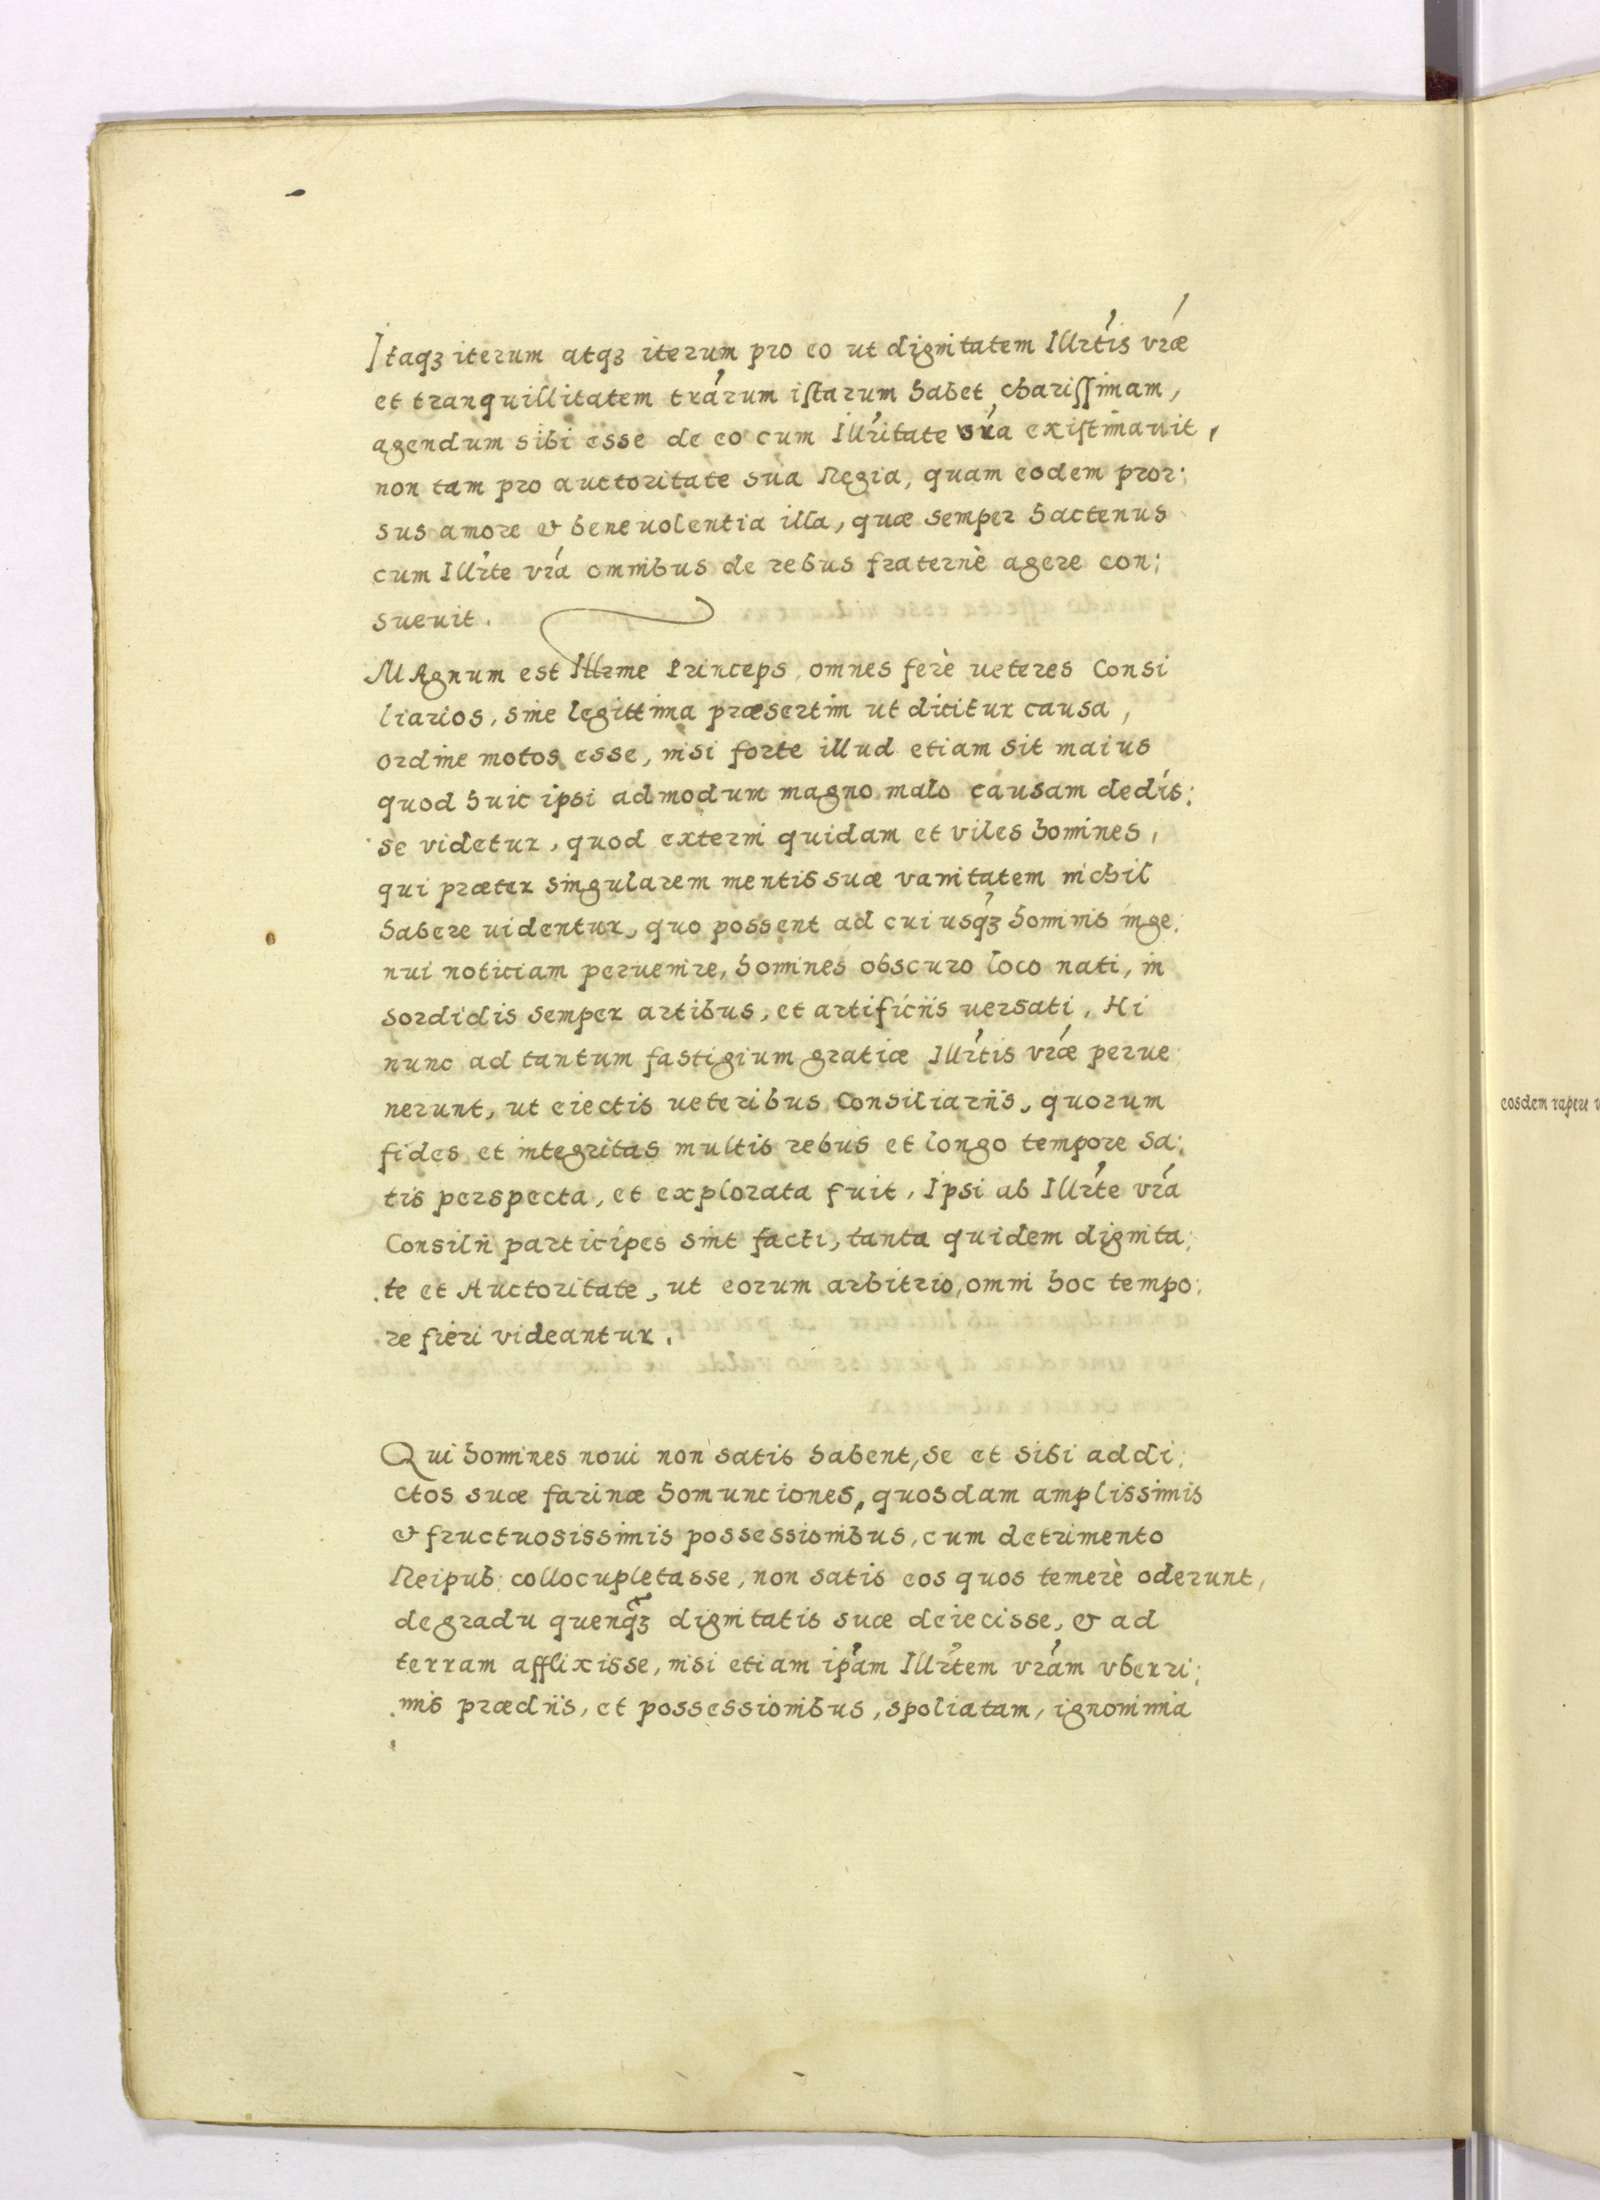 Itaqꝫ iterum atqꝫ iterum pro eo ut dignitatem Illrtis vræ
et tranquillitatem trarum istarum habet charissimam,
agendum sibi esse de eo cum Illritate vra existimavit,
non tam pro auctoritate sua Regia, quam eodem pror:
sus amore & beneuolentia illa, quæ semper hactenus
cum Illrte vra omnibus de rebus fraternè agere con:
sueuit.
MAgnum est Illrme Princeps, omnes ferè ueteres Consi
liarios, sine legittima præsertim ut dicitur causa,
ordine motos esse, nisi forte illud etiam sit maius
quod huic ipsi admodum magno malo causam dedis:
se videtur, quod externi quidam et viles homines,
qui præter singularem mentis suæ vanitatem nichil
habere uidentur, quo possent ad cuiusqꝫ hominis inge:
nui noticiam peruenire, homines obscuro loco nati, in
sordidis semper artibus, et artificiis uersati, Hi
nunc ad tantum fastigium gratiæ Illrtis vræ perue:
nerunt, ut eiectis ueteribus Consiliariis, quorum
fides et integritas multis rebus et longo tempore sa:
tis perspecta, et explorata fuit, Ipsi ab Illrte vra
Consilii participes sint facti, tanta quidem dignita:
te et Auctoritate, ut eorum arbitrio, omni hoc tempo:
re fieri videantur.
Qui homines noui non satis habent, se et sibi addi:
ctos suæ farinæ homunciones, quosdam amplissimis
& fructuosissimis possessionibus, cum detrimento
Reipub: collocupletasse, non satis eos quos temerè oderunt,
de gradu quenqꝫ dignitatis suæ deiecisse, & ad
terram afflixisse, nisi etiam ipam Illrtem vram vberri:
mis prædiis, et possessionibus, spoliatam, ignominia
eosdem rapere